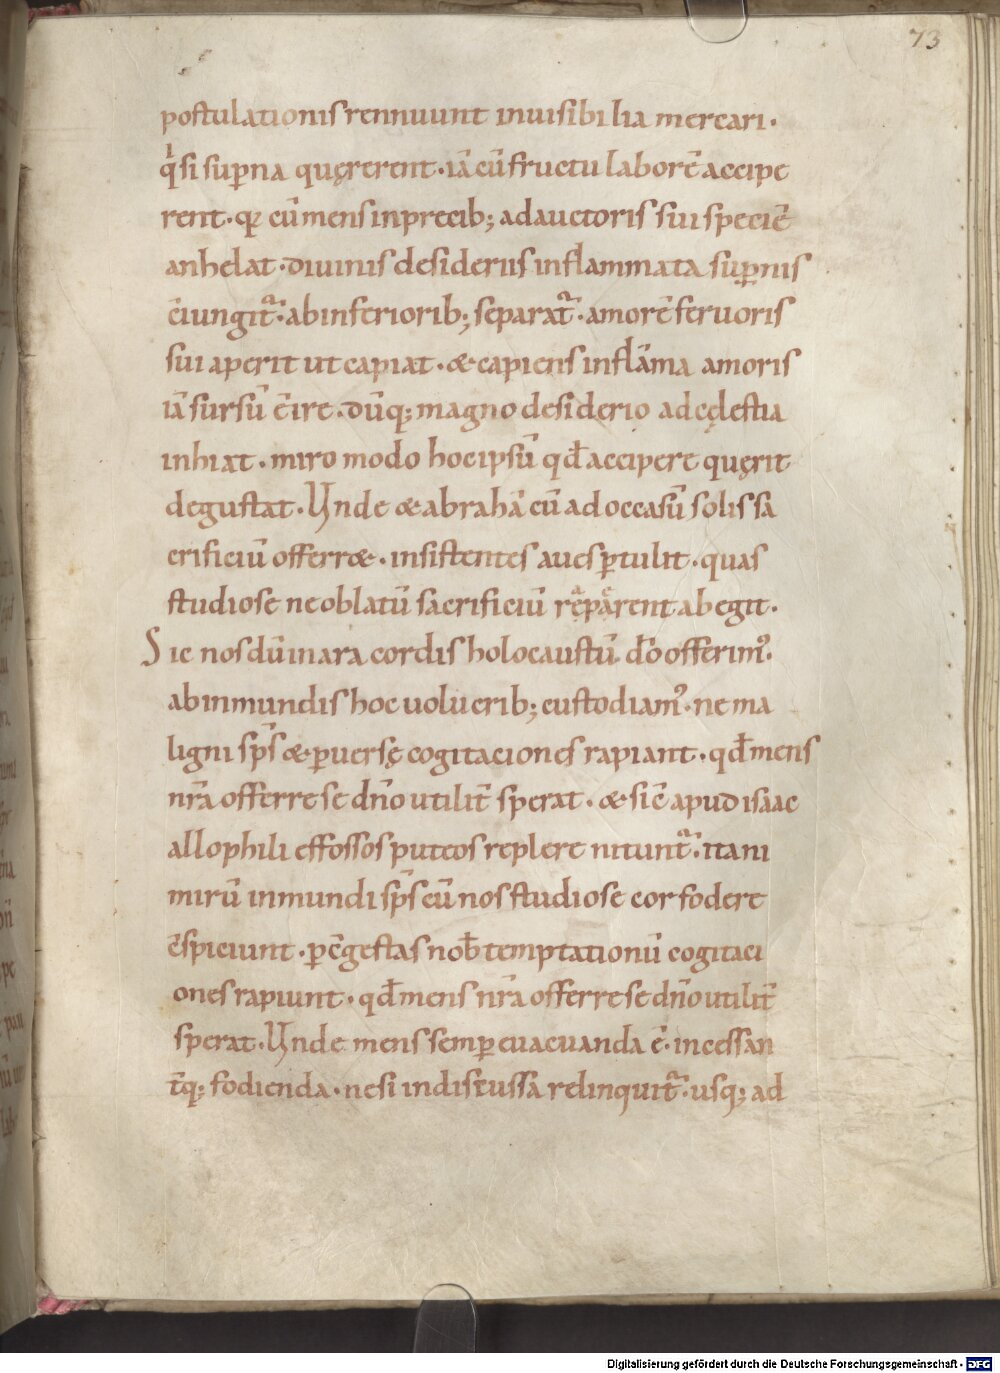 73
postulationis rennuunt inuisibilia mercari·
qͥ si sup̱na quęrerent· iā cū fructu laborē accipe
rent· qꝛ cū mens in precib; ad auctoris sui speciē
anhelat· diuinis desideriis inflammata sup̱nis
c̄iungit᷑· ab inferiorib; separat᷑· amorē feruoris
sui aperit ut capiat· & capiens inflāma amoris
iā sursū c̄ ire· dūq; magno desiderio ad cęlestia
inhiat· miro modo hoc ipsū qđ accipere quęrit
degustat· Unde & abrahā cū ad occasū solis sa
crificiū offerr&· insistentes aues ꝑtulit· quas
studiose ne oblatū sacrificiū rēparent abegit·
Sic nos dū in ara cordis holocaustū dō offerim᷒·
ab inmundis hoc uolucrib; custodiam᷒· ne ma
ligni sp̄s & ꝑuersę cogitaciones rapiant· qđ mens
nr̄a offerre se dn̄o utilit̄ sperat· & sic̄ apud isaac
allophili effossos puteos replere nitunt᷑· ita ni
mirū inmundi sp̄s cū nos studiose cor fodere
c̄spiciunt· ꝑ c̄gestas nob̄ temptationū cogitaci
ones rapiunt· qđ mens nr̄a offerre se dn̄o utilit̄
sperat· Unde mens semꝑ euacuanda ē· incessan
t̄q; fodienda· ne si indiscussa relinquit᷑· usq; ad
Digitalisierung gefördert durch die Deutsche Forschungsgemeinschaft - DFG